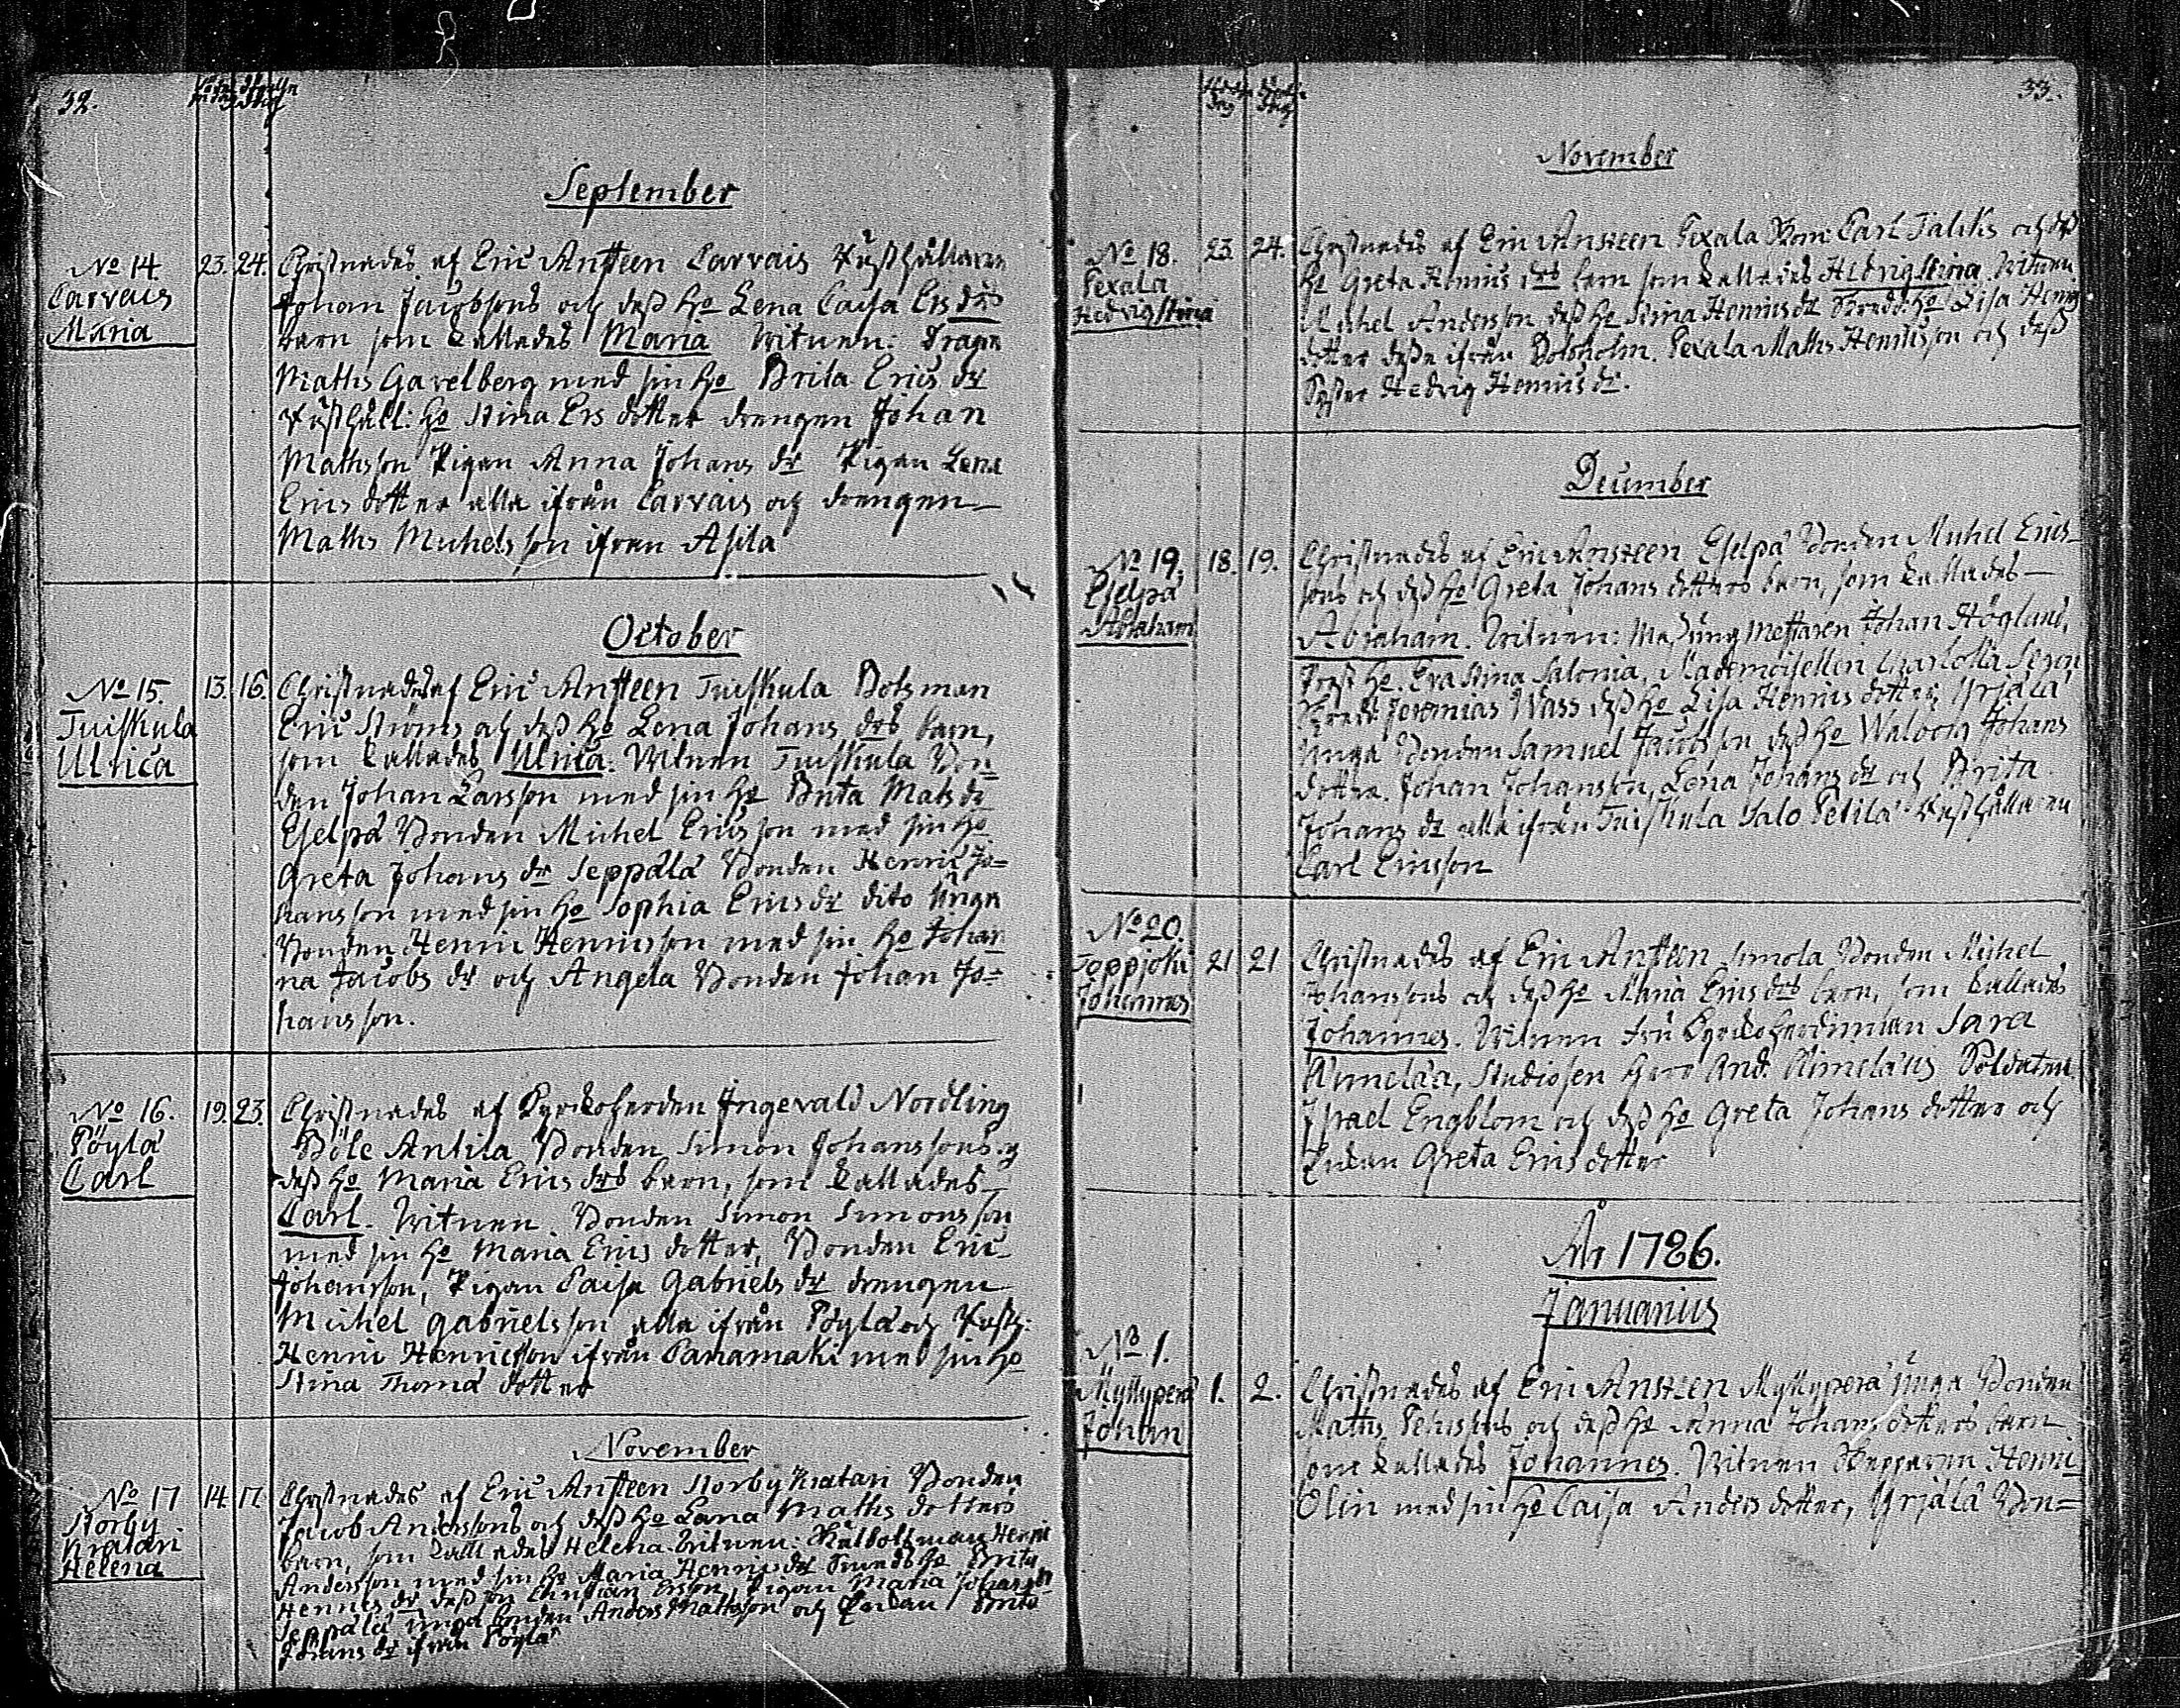 32.
September
No 14
Carvais
Maria
23. 24.
Christnades af Eric Ansteen Carvais Rusthållaren
Johan Jacobsons och dess ho Lena Caisa Ers drs
barn som kallades Maria Witnen: Dragon
Matths Gavelberg med sin ho Brita Erics dr
Rusthåll: ho Stina Ers dotter drengen Johan
Mathsson Pigan Anna Johans dr Pigan Lena
Erics dotter alla ifrån Carvais och drengen
Maths Michelsson ifrån Asila
October
No 15.
Tuiskula
Ulrica
13. 16.
Christnades af Eric Ansteen Tuiskula Botsman
Eric Ströms och dess ho Lena Johans drs barn,
som kallades Ulrica. Witnen Tuiskula Bon
den Johan Larsson med sin ho Brita Mats dr
Eselpä Bonden Michel Ericsson med sin ho
Greta Johans dr Seppälä Bonden Henric Jo=
hansson med sin ho Sophia Erics dr dito unga
Bonden Henric Henricsson med sin ho Johan
na Jacobs dr och Angela Bonden Johan Jo=
hansson.
No 16.
Pöylä
Carl
19. 23.
Christnades af Kyrckoherden Ingevald Nordling
Böle Antila Bonden Simon Johanssons och
dess ho Maria Erics drs barn, som kallades
Carl. Witnen. Bonden Simon Simonsson
med sin ho Maria Erics dotter, Bonden Eric
Johansson, Pigan Caisa Gabriels dr drengen
Michel Gabrielsson alla ifrån Pöylä och Rusth:
Henric Henricsson ifrån Panamaki med sin ho
Stina Thoma dotter
November
No 17
Storby
Kratari
Helena
14. 17.
Christnades af Eric Ansteen Storby Kratari Bonden
Jacob Anderssons och dess ho Lena Maths dotters
barn, som kallades Helena. Witnen: Båtsman Henric
Andersson med sin ho Maria Henrics dr ho Brita
Henrics dr dess son Christian Ersson, Pigan Maria Johans dr
Seppälä unga bonden Anders Mathsson och Brita
Johans dr ifrån Pöylä
33.
November
No 18.
Pexala
Hedvig Stina
23. 24.
Christnades af Eric Ansteen Pexala Carl Falcks och dess
ho Greta Henrics drs barn som kallades Hedvig Stina. Witnen
Michel Andersson dess ho Stina Henrics dr ho Lisa Henrics
dotter desse ifrån Boloholm. Pexala Maths Henricsson och dess
Syster Hedvig Henrics dr.
December
No 19.
Eselpä
Abraham
18. 19.
Christnades af Eric Ansteen Eselpä Bonden Michel Erics-
sons och dess ho Greta Johans dotters barn, som kallades
Abraham. Witnen: Johan Höglund,
dess ho. Eva Stina Salonia, Mademoisellen Charlotta
Jeremias Wass dess ho Lisa Henrics dotter, Yrjälä
unga Bonden Samuel Jacobsson dess ho Walborg Johans
dotter. Johan Johansson, Lena Johans dr och Brita
Johans dr alla ifrån Tuiskula Salo Petilä Rusthållaren
Carl Ericsson
No 20.
Toppjoki
Johannes
21 21
Christnades af Eric Ansteen Simola Bonden Michel
Johanssons och dess ho Maria Erics drs barn, som kallades
Johannes. Witnen Fru Kyrckoherdinnan Sara
Rimelaa, Studiosen Herr And. Rimelaus Soldaten
Israel Engblom och dess ho Greta Johans dotter och
Greta Erics dotter
År 1786.
Januarius
No 1.
Myllyperä
Johan
1. 2.
Christnades af Eric Ansteen Myllyperä unga Bonden
Maths och dess ho Anna Johans dotters barn
som kallades Johannes. Witnen Skepparen Henric
Olin med sin ho Caisa Anders dotter, Yrjälä Bon=